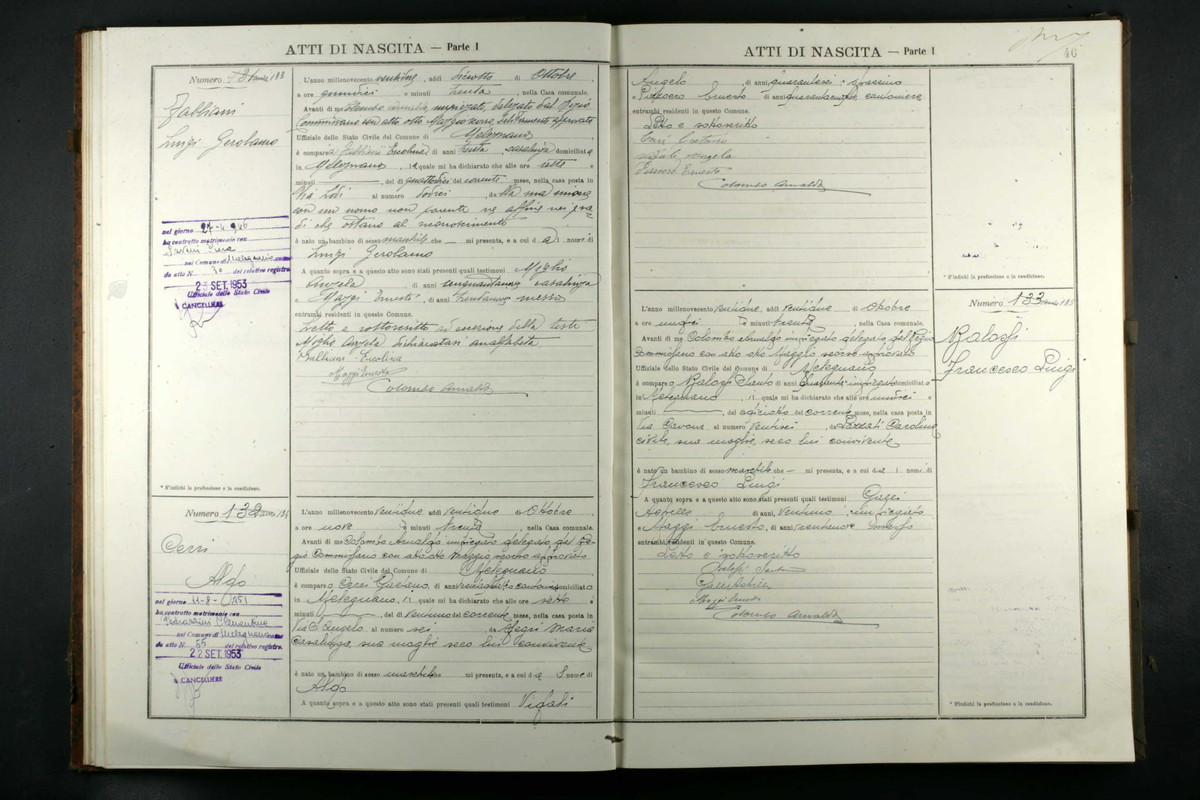 ATTI DI NASCITA — Parte I
Numero
Fabbiani
Luigi Gerolamo
nel giorno 27-4-1946
ha contratto matrimonio con
nel Comune di Melegnano
da atto N. 30 del relativo registro
23 SET. 1953
Ufficiale dello Stato Civile
CANCELLIERE
* S'indichi la professione o la condizione.
L'anno millenovecento ventidue, addì diciotto di Ottobre,
a ore quindici e minuti trenta, nella Casa comunale.
Avanti di me Colombo Arnaldo impiegato, delegato dal Regio
Commissario con atto otto Maggio scorso, debitamente approvato
Ufficiale dello Stato Civile del Comune di Melegnano
è comparsa Fabbiani Ercolina di anni trenta, casalinga domiciliata
in Melegnano, la quale mi ha dichiarato che alle ore sette e
minuti — , del dì quattordici del corrente mese, nella casa posta in
Via Lodi al numero dodici, da
con un uomo non parente nè affine nei gra-
di che ostano al riconoscimento
è nato un bambino di sesso maschile che — mi presenta, e a cui dà i nome di
Luigi Gerolamo
A quanto sopra e a questo atto sono stati presenti quali testimoni Moglio
Angela, di anni cinquantanove casalinga
e Maggi Ernesto, di anni trentanove messo
entrambi residenti in questo Comune.
Letto e sottoscritto ad eccezione della teste
Moglio Angela dichiaratasi analfabeta
Fabbiani Ercolina
Maggi Ernesto
Colombo Arnaldo
Numero 132
Cerri
Aldo
nel giorno 11-8-1951
ha contratto matrimonio con
nel Comune di Melegnano
da atto N. 55 del relativo registro.
22 SET. 1953
Ufficiale dello Stato Civile
CANCELLIERE
L'anno millenovecento ventidue, addì ventidue di Ottobre,
a ore nove e minuti trenta, nella Casa comunale.
Avanti di me Colombo Arnaldo impiegato delegato dal Re-
gio Commissario con atto otto Maggio scorso approvato
Ufficiale dello Stato Civile del Comune di Melegnano
è comparso Cerri Gaetano, di anni domiciliato
in Melegnano, il quale mi ha dichiarato che alle ore sette e
minuti — , del dì ventuno del corrente mese, nella casa posta in
Via S. Angelo al numero sei, da Negri Maria
Casalinga, sua moglie seco lui convivente
è nato un bambino di sesso maschile che — mi presenta, e a cui dà i nome di
Aldo
A quanto sopra e a questo atto sono stati presenti quali testimoni Vigati
ATTI DI NASCITA — Parte I
46
Angelo, di anni quarantasei
e Pizzocro Ernesto di anni cantoniere
entrambi residenti in questo Comune.
Letto e sottoscritto
Cerri Gaetano
Vigati Angelo
Pizzocro Ernesto
Colombo Arnaldo
* S'indichi la professione o la condizione.
L'anno millenovecento ventidue, addì ventidue di Ottobre
a ore undici e minuti trenta, nella Casa comunale.
Avanti di me Colombo Arnaldo impiegato delegato dal Regio
Commissario con atto otto Maggio scorso approvato
Ufficiale dello Stato Civile del Comune di Melegnano
è comparso Balossi Santo di anni quaranta impiegato domiciliato
in Melegnano, il quale mi ha dichiarato che alle ore undici e
minuti — , del dì diciotto del corrente mese, nella casa posta in
Via Cavour al numero ventisei, da Carolina
civile, sua moglie, seco lui convivente
è nato un bambino di sesso maschile che — mi presenta, e a cui dà i nome di
Francesco Luigi
A quanto sopra e a questo atto sono stati presenti quali testimoni
Achille di anni, ventuno, impiegato
e Maggi Ernesto, di anni trentanove messo
entrambi residenti in questo Comune.
Letto e sottoscritto
Balossi Santo
Maggi Ernesto
Colombo Arnaldo
Numero 133
Balossi
Francesco Luigi
* S'indichi la professione o la condizione.